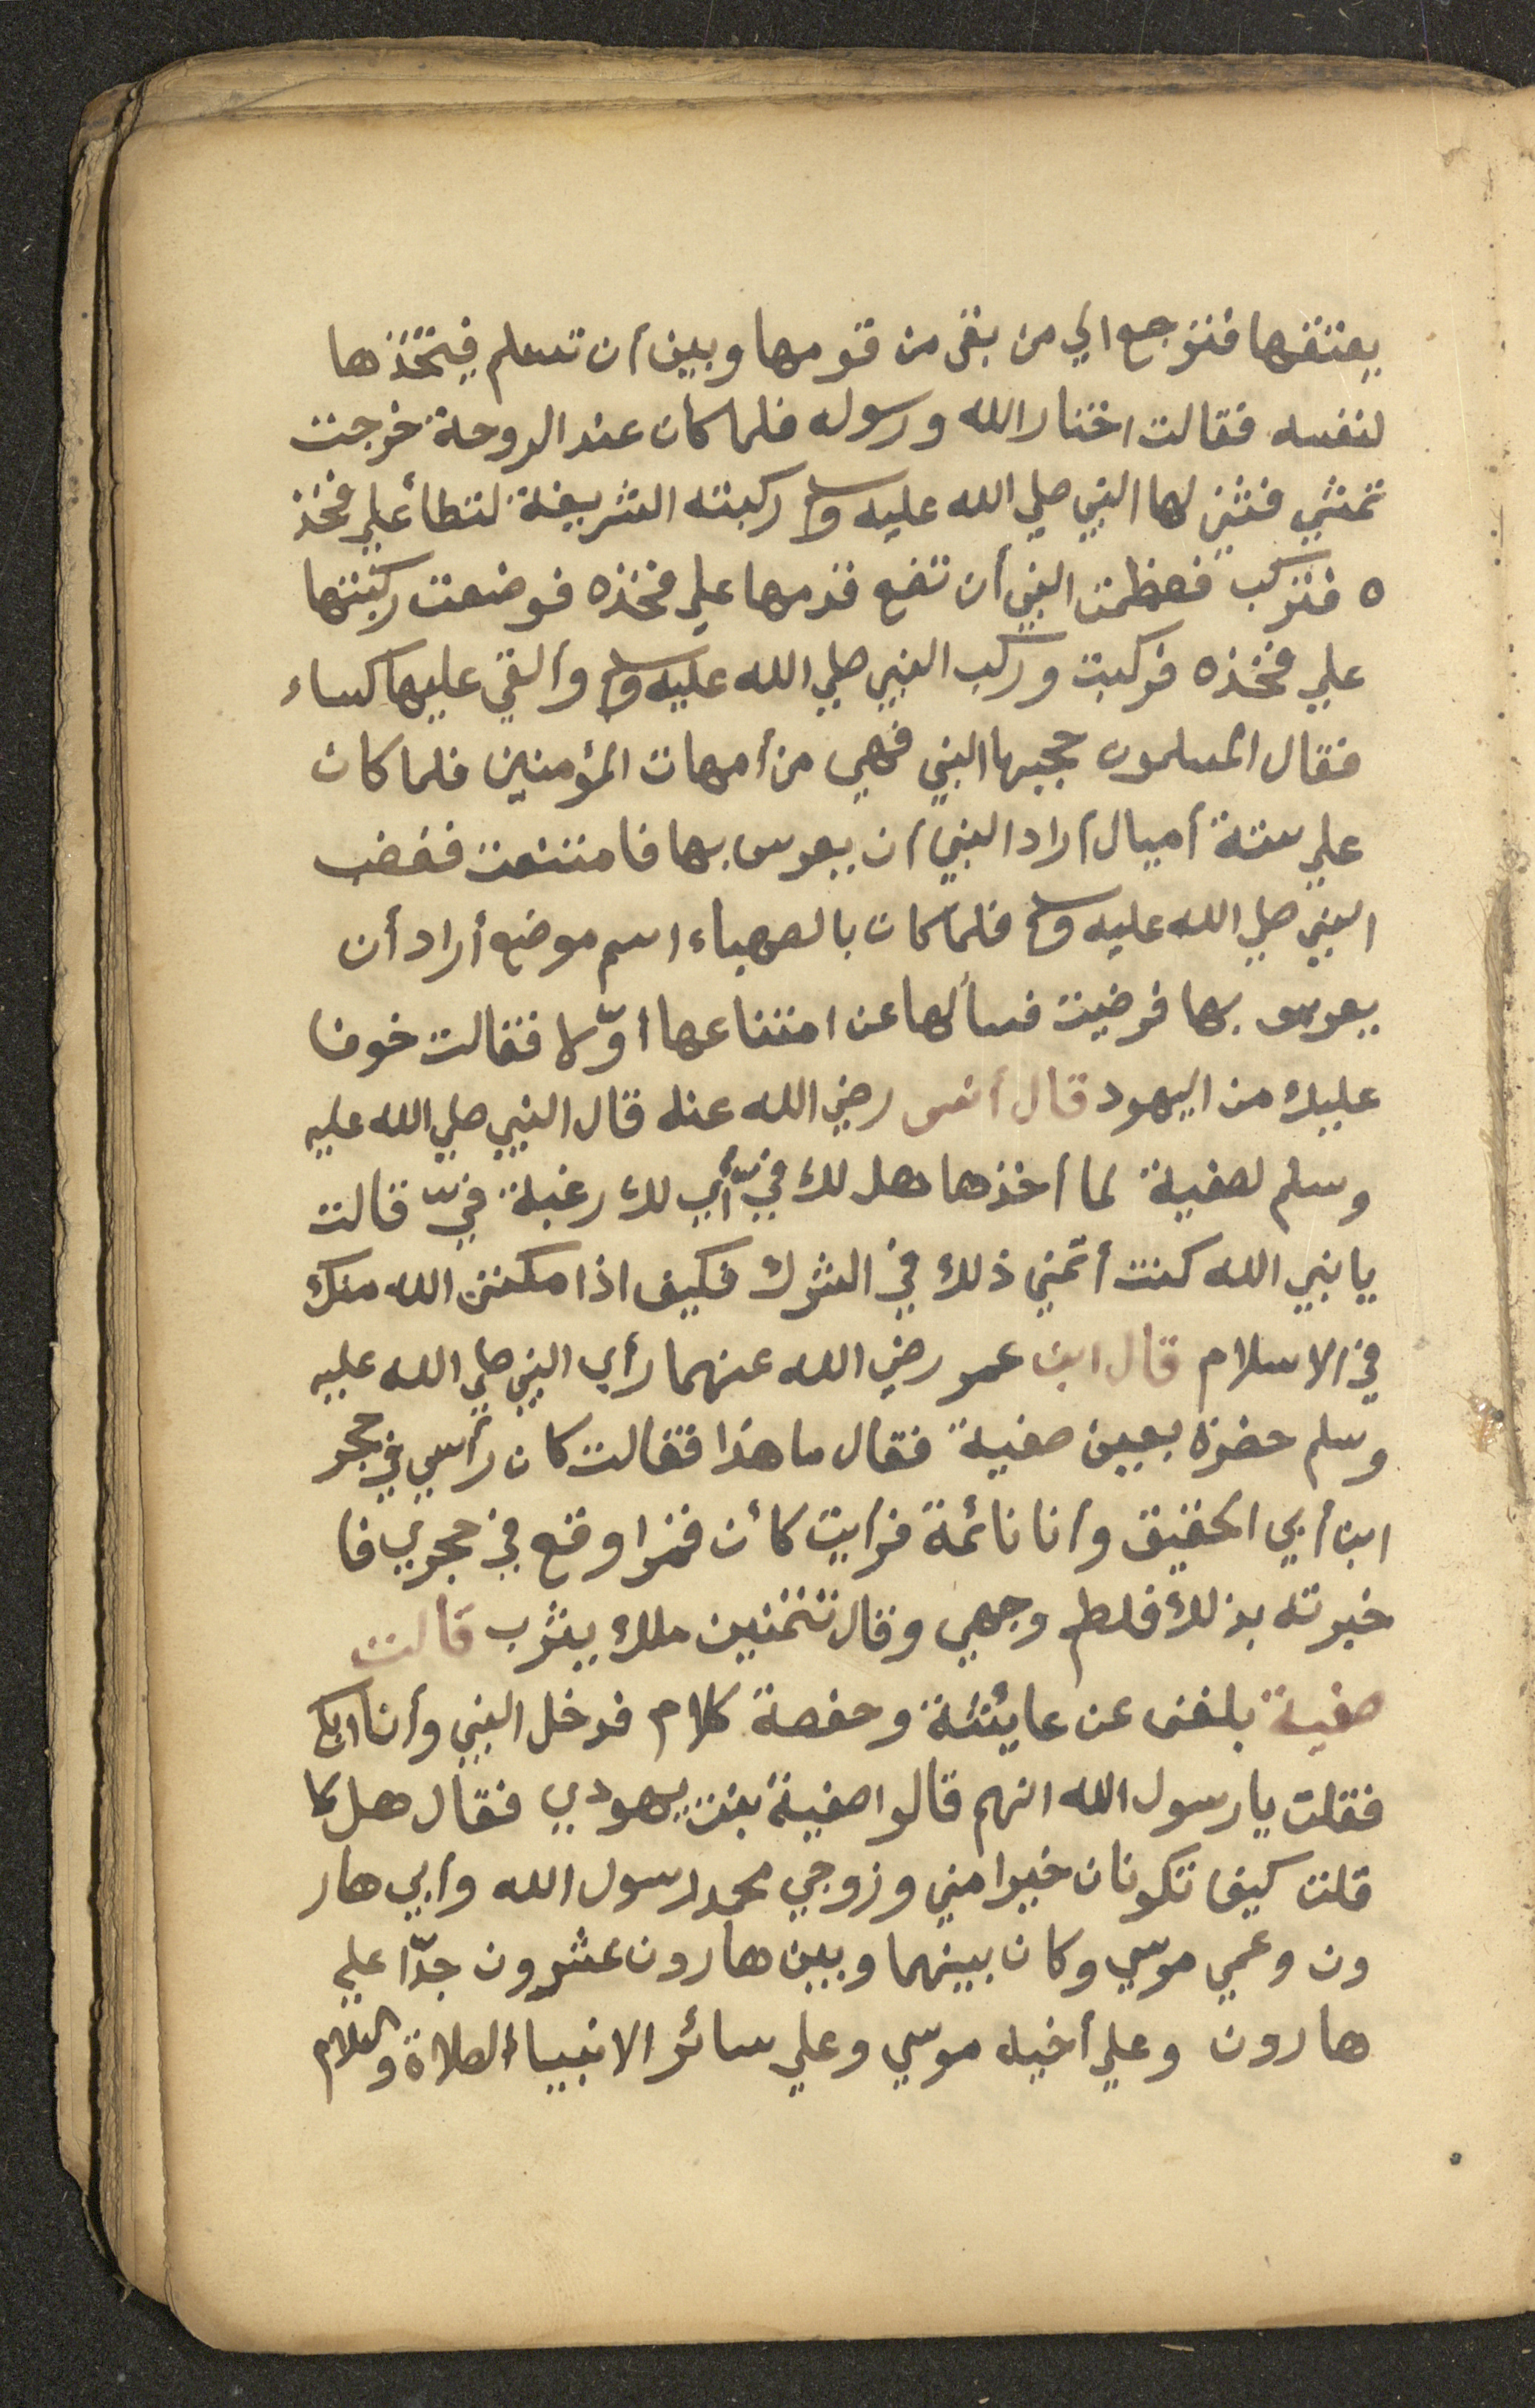 يعتقها فترجع الي من بقى من قومها وبين أن تسلم فيتخذها
لنفسه فقالت اختار الله ورسوله فلما كان عند الروحة خرجت
تمشي فثنى لها النبي صلي الله عليه وسلم ركبته الشريفة لتطأ علي فخذ
ه فتركب فعظمت النبي أن تضع قدمها علي فخذه فوضعت ركبتها
علي فخذه فركبت وركب النبي صلي الله عليه وسلم وألقي عليها كساء
فقال المسلمون حجبها النبي فهي من أمهات المؤمنين فلما كان
علي ستة أميال أراد النبي أن يعرس بها فامتنعت فغضب
النبي صلي الله عليه وسلم فلما كان بالصهباء اسم موضع أراد أن
يعرس بها فرضيت فسألها عن امتناعها أوّلا فقالت خوفا
عليك من اليهود قال أنس رضي الله عنه قال النبي صلي الله عليه
وسلم لصفية لما أخذها هل لك فيّ أي لك رغبة فيّ قالت
يا نبي الله كنت أتمني ذلك في الشرك فكيف اذا مكنني الله منك
في الاسلام قال ابن عمر رضي الله عنهما رأي النبي صلي الله عليه
وسلم حضرة بعين صفية فقال ما هذا فقالت كان رأسي في حجر
ابن أبي الحقيق وأنا نائمة فرأيت كأن قمرا وقع في حجري فا
خبرته بذلك فلطم وجهي وقال تتمنين ملك يثرب قالت
صفية بلغني عن عائشة وحفصة كلام فدخل النبي وأنا ابكي
فقلت يا رسول الله انهم قالوا صفية بنت يهودي فقال هل لا
قلت كيف تكونان خيرا مني وزوجي محمد رسول الله وأبي هار
ون وعمي موسي وكان بينهما وبين هارون عشرون جدّا علي
هارون وعلي أخيه موسي وعلي سائر الانبياء الصلاة والسلام